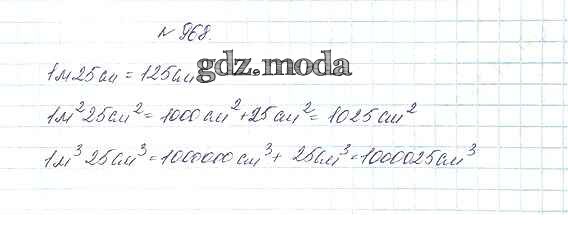 № 968.
1м 25см = 125см
gdz.moda
1м² 25см² = 1000см² + 25см² = 1025см²
1м³ 25см³ = 1000000см³ + 25см³ = 1000025см³